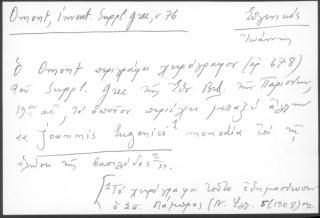 Omont, Invent. Suppl. grec, σ. 76
Εὐγενικός
Ἰωάννης
Ὁ Omont περιγράφει χειρόγραφον (ἀρ. 678)
τοῦ Suppl. Grec τῆς Ἐθν. Βιβ. τῆς Παρισίων,
19ου αἰ., τὸ ὁποῖον περιέχει μεταξὺ ἄλλων
τα Joannis Eugenici¹ monodia ἐπὶ τῇ
ἁλώσει τῆς βασιλίδος
¹ Τὸ χειρόγραφον τοῦτο ἐδημοσίευσεν
ὁ Σπ. Λάμπρος (Ν. Ἑλλ. 5 (1908)